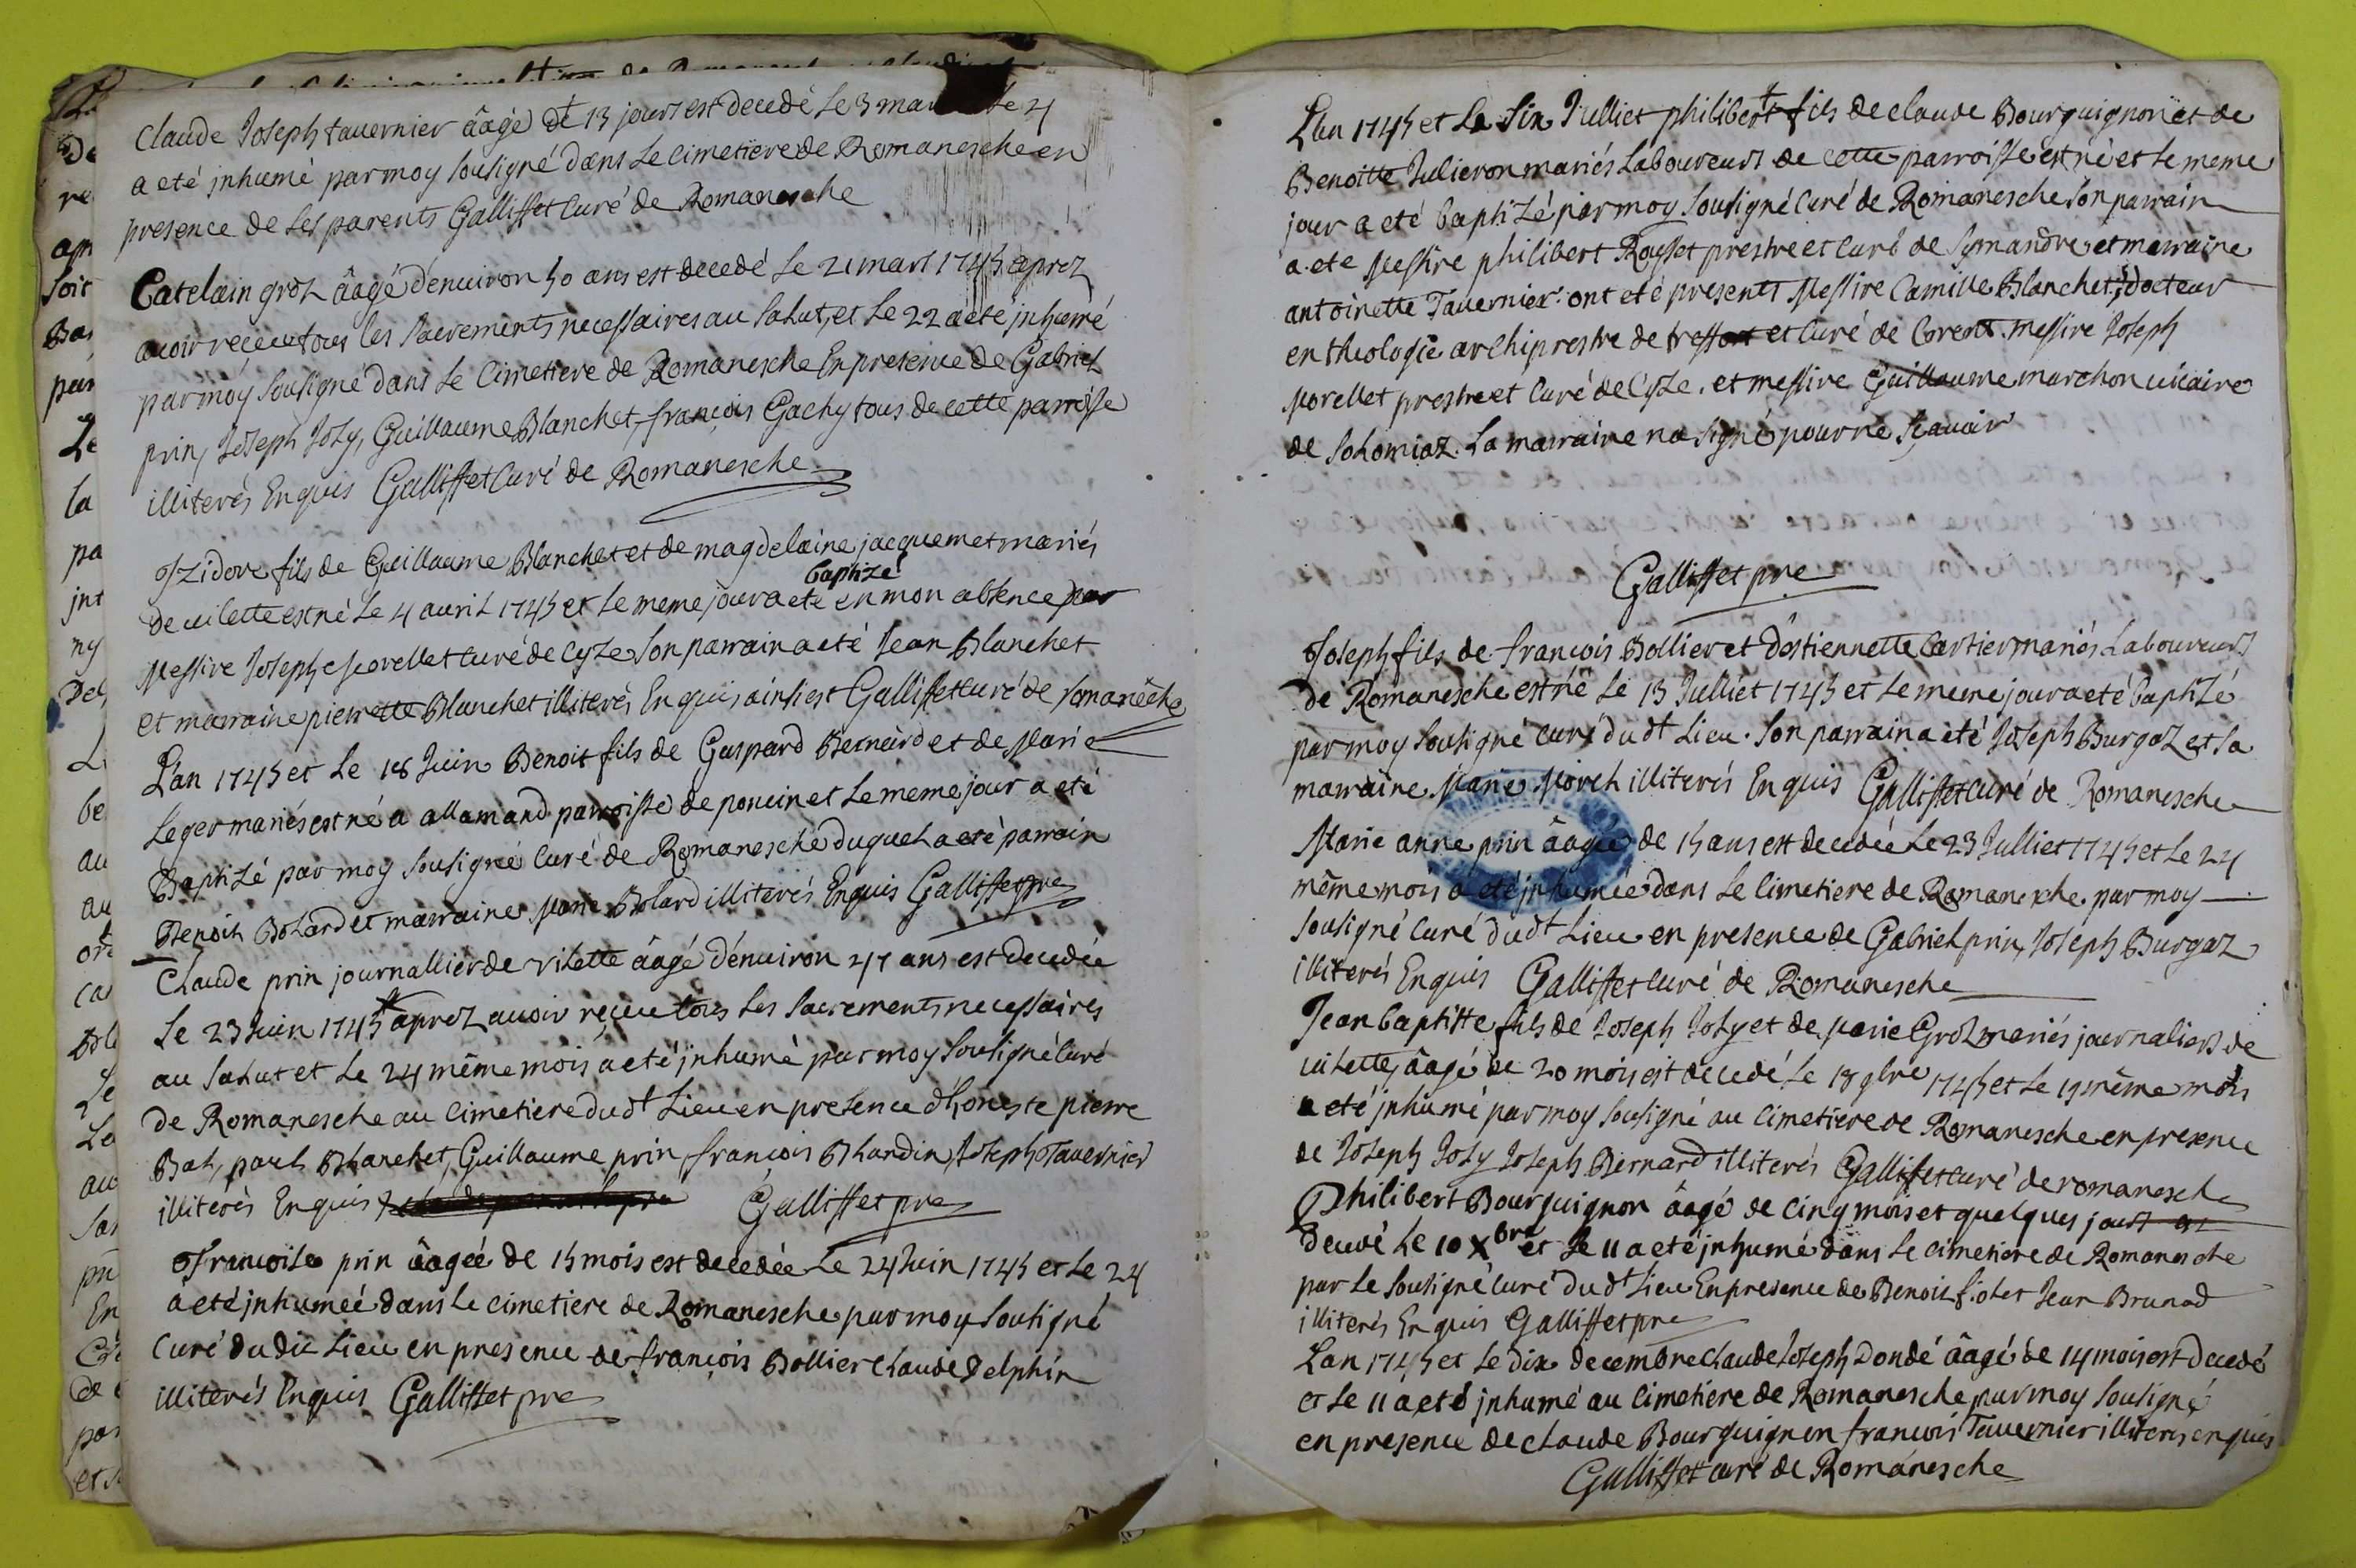 Claude Joseph tavernier âagé de 13 jours est decedé le 3 mar le 4
a eté jnhumé par moy sousigné dans le cimetiere de Romanesche en
presence de ses parents Galliffet Curé de Romanesche
Catelain groz âagé d'environ 50 ans est decedé le 21 mars 1745 aprez
avoir reçeu tous les sacrements necessaires au salut, et le 22 a eté jnhumé
par moy sousigné dans le Cimetiere de Romanesche En presence de Gabriel
prin, Joseph Joly, Guillaume Blanchet, françois Gachy tous de cette parroisse
illiterés Enquis Galliffet Curé de Romanesche
Jzidore fils de Guillaume Blanchet et de magdelaine jacquemet mariés
baptizé
de vilette est né le 4 avril 1745 et le meme jour a eté en mon absence par
Messire Joseph Morellet curé de Cyze son parrain a eté Jean Blanchet
et marraine pierrette Blanchet illiterés Enquis, ainsi est Galliffet curé de romanêche
L'an 1745 et le 18 Juin Benoit fils de Gaspard Bernard et de Marie
Leger mariés est né a allamand parroisse de poncin et le meme jour a eté
Baptizé par moy sousigné Curé de Romanesche duquel a eté parrain
Benoit Bolard et marraine Marie Bolard illiterés Enquis Galliffet pre
Claude prin journallier de vilette âagé d'environ 47 ans est decedée
le 23 Juin 1745 aprez avoir reçeu tous les sacrements necessaires
au salut et le 24 même mois a eté jnhumé par moy sousigné Curé
de Romanesche au Cimetiere dudt Lieu en presence d'honeste pierre
Bal, paul Blanchet, Guillaume prin, françois Blandin, Joseph Tavernier
illiterés Enquis Galliffet pre
françoise prin âagée de 15 mois est decedée Le 24 Juin 1745 et le 24
a eté jnhumeé dans le cimetiere de Romanesche par moy sousigné
Curé dudit Lieu en presence de françois Bollier Claude Delphin
illiterés Enquis Galliffet pre
L'an 1745 et le six Julliet philibert fils de claude Bourguignon et de
Benoitte Julieron mariés Laboureurs de cette parroisse est né et le meme
jour a eté baptizé par moy sousigné Curé de Romanesche son parrain
a ete Messire philibert Roysset prestre et Curé de Symandre et marraine
antoinette Tavernier. ont eté presents Messire Camille Blanchet, docteur
en theologie archiprestre de treffort et Curé de Corent. messire Joseph
Morellet prestre et Curé de Cyze. et messire Guillaume marchon vicaire
de solomiaz. La marraine na signé pour ne sçavoir
Galliffet pre
Joseph fils de françois Bollier et d'estiennette Cartier mariés Laboureurs
de Romanesche est né le 13 Julliet 1745 et le meme jour a eté baptizé
par moy sousigné curé dudt Lieu. son parrain a eté Joseph Burgaz et sa
marraine Marie Morel illiterés Enquis Galliffet curé de Romanesche
Marie anne prin âagée de 15 ans est decedée le 23 Julliet 1745 et le 24
même mois a eté jnhumée dans le Cimetiere de Romanesche par moy
sousigné Curé dudt Lieu en presence de Gabriel prin, Joseph Burgaz
illiterés Enquis Galliffet curé de Romanesche
Jean baptiste fils de Joseph Joly et de Marie Groz mariés journaliers de
vilette, âagé de 20 mois est decedé le 18 9bre 1745 et le 19 même mois
a eté jnhumé par moy sousigné au Cimetiere de Romanesche en presence
de Joseph Joly Joseph Bernard illiterés Galliffet curé de romanesche
Philibert Bourguignon âagé de cinq mois et quelques jours est
decedé le 10 Xbre et le 11 a eté jnhumé dans le cimetiere de Romanesche
par le sousigné Curé dudt Lieu En presence de Benoit fiolet Jean Brunod
illiterés Enquis Galliffet pre
L'an 1745 et le dix decembre claude Joseph Dondé âagé de 14 mois est decedé
et le 11 a eté jnhumé au Cimetiere de Romanesche par moy sousigné
en presence de claude Bourguignon françois Tavernier illiterés enquis
Galliffet curé de Romanesche